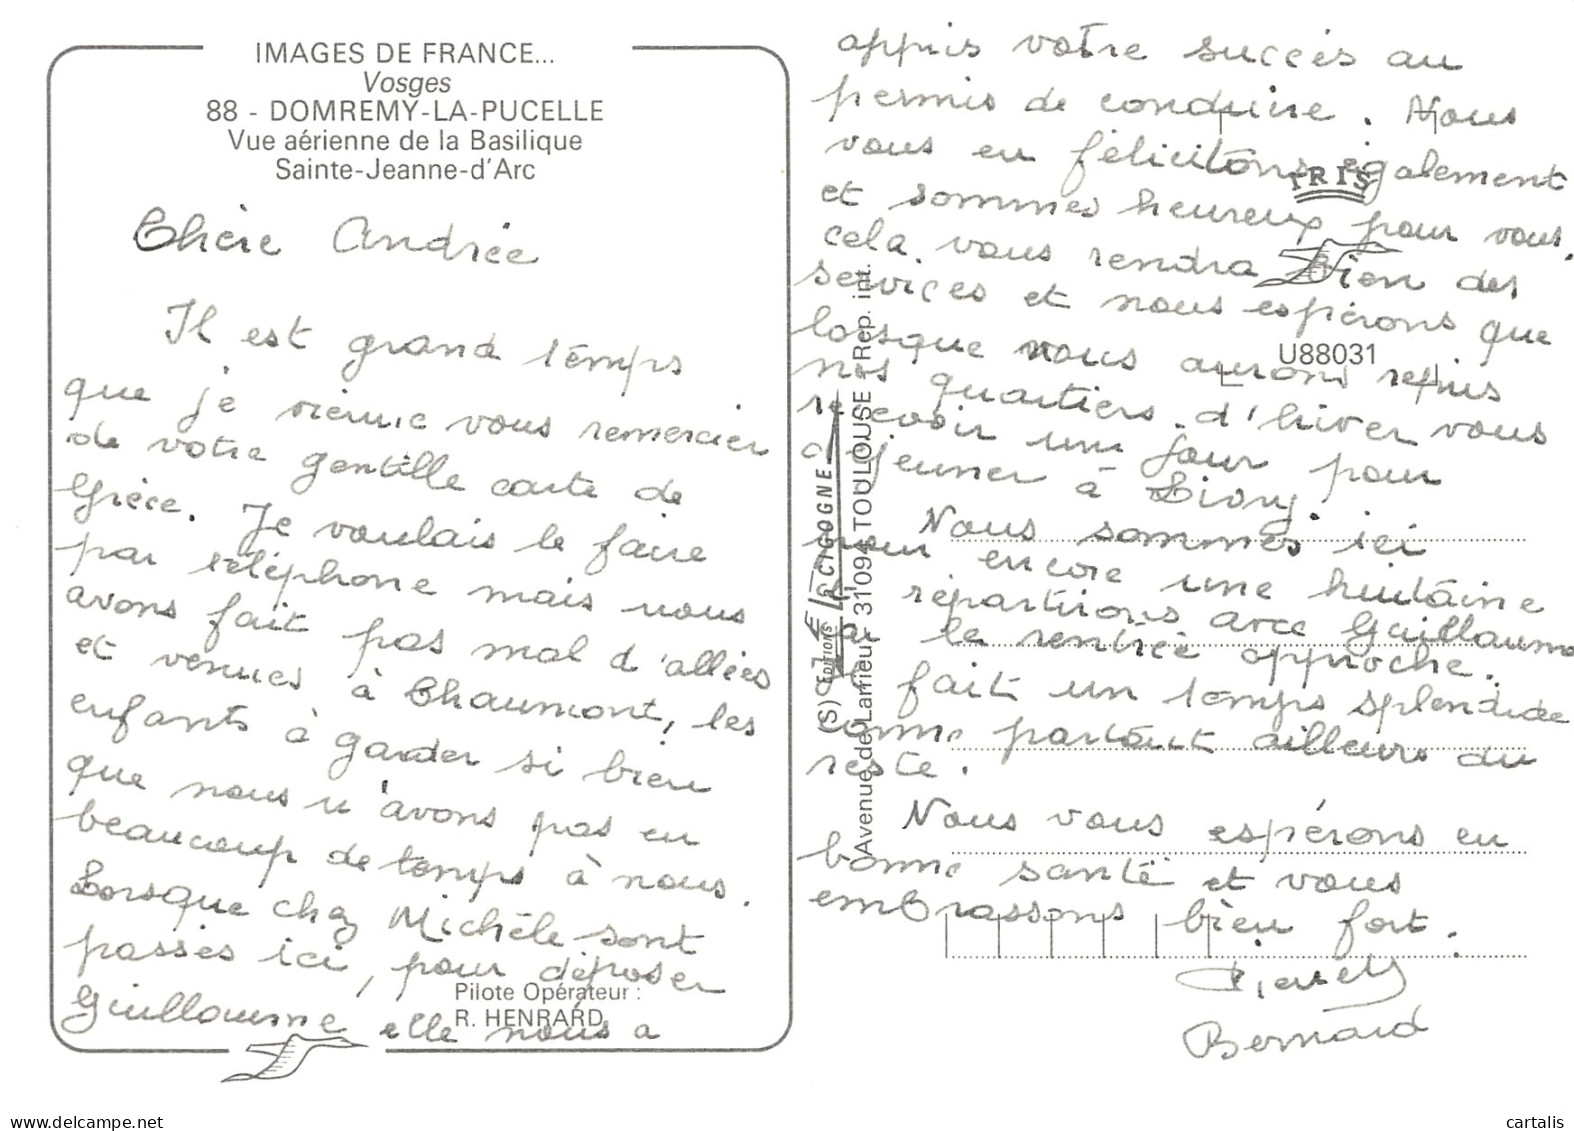 IMAGES DE FRANCE...
Vosges
88 - DOMREMY-LA-PUCELLE
Vue aérienne de la Basilique
Sainte-Jeanne-d'Arc
Chère Andrée
Il est grand temps
que je vienne vous remercier
de votre gentille carte de
Grèce. Je voulais le faire
par téléphone mais nous
avons fait pas mal d'allées
et venues à Chaumont, les
enfants à garder si bien
que nous n'avons pas eu
beaucoup de temps à nous.
Lorsque chez Michèle sont
passés ici, pour déposer
Guillaume elle nous a
Pilote Opérateur :
R. HENRARD
appris votre succès au
permis de conduire. Nous
vous en félicitons également
et sommes heureux pour vous,
cela vous rendra bien des
services et nous espérons que
lorsque nous aurons repris
nos quartiers d'hiver vous
recevoir un jour pour
déjeuner à Livry.
Nous sommes ici
pour encore une huitaine
répartirons avec Guillaume
car la rentrée approche.
Il fait un temps splendide
comme partout ailleurs du
reste.
Nous vous espérons en
bonne santé et vous
embrassons bien fort.
Bernard
IRIS
U88031
(S) EDITIONS LA CIGOGNE
Avenue de Larrieu - 31094 TOULOUSE - Rep. int.
cartalis